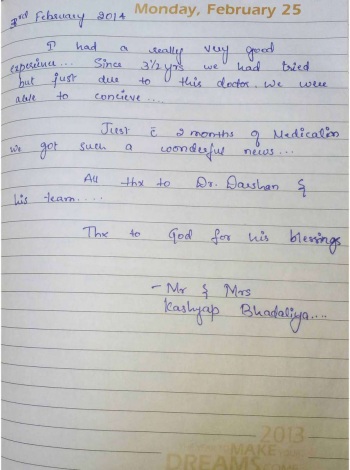 Monday, February 25
3rd February 2014
I had a really very good
experience... Since 3½ yrs we had tried
but just due to this doctor. We were
able to concieve....
Just c̄ 2 months of Medication
we got such a wonderful news...
All thx to Dr. Darshan &
his team....
Thx to God for his blessings
- Mr & Mrs
Kashyap Bhadaliya....
2013
MAKE
DREAMS